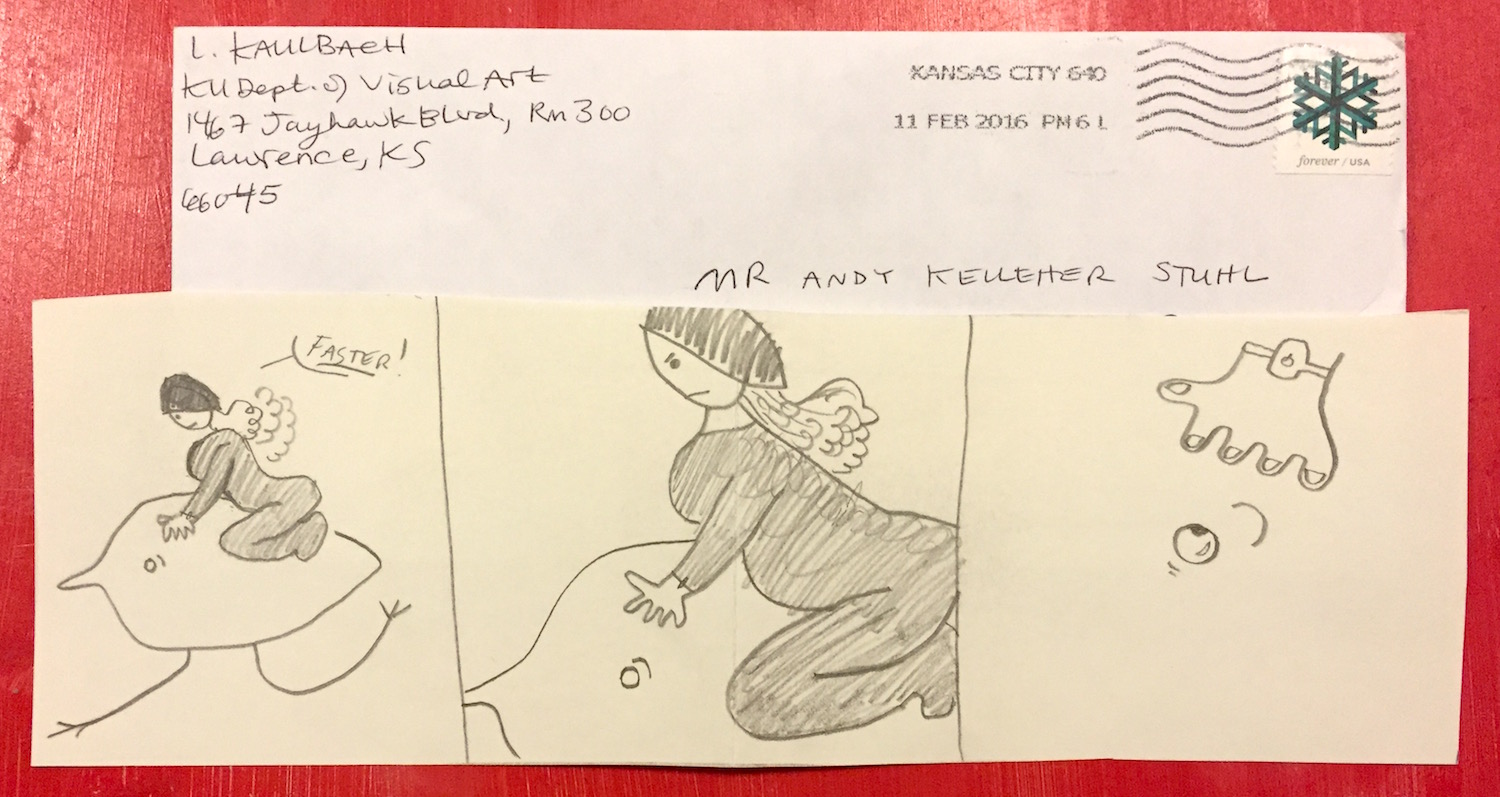 L. KAULBACH
KU Dept. of Visual Art
1467 Jayhawk Blvd, Rm 300
Lawrence, KS
66045
KANSAS CITY 640
11 FEB 2016 PM 6 L
forever / USA
MR ANDY KELLEHER STUHL
FASTER!